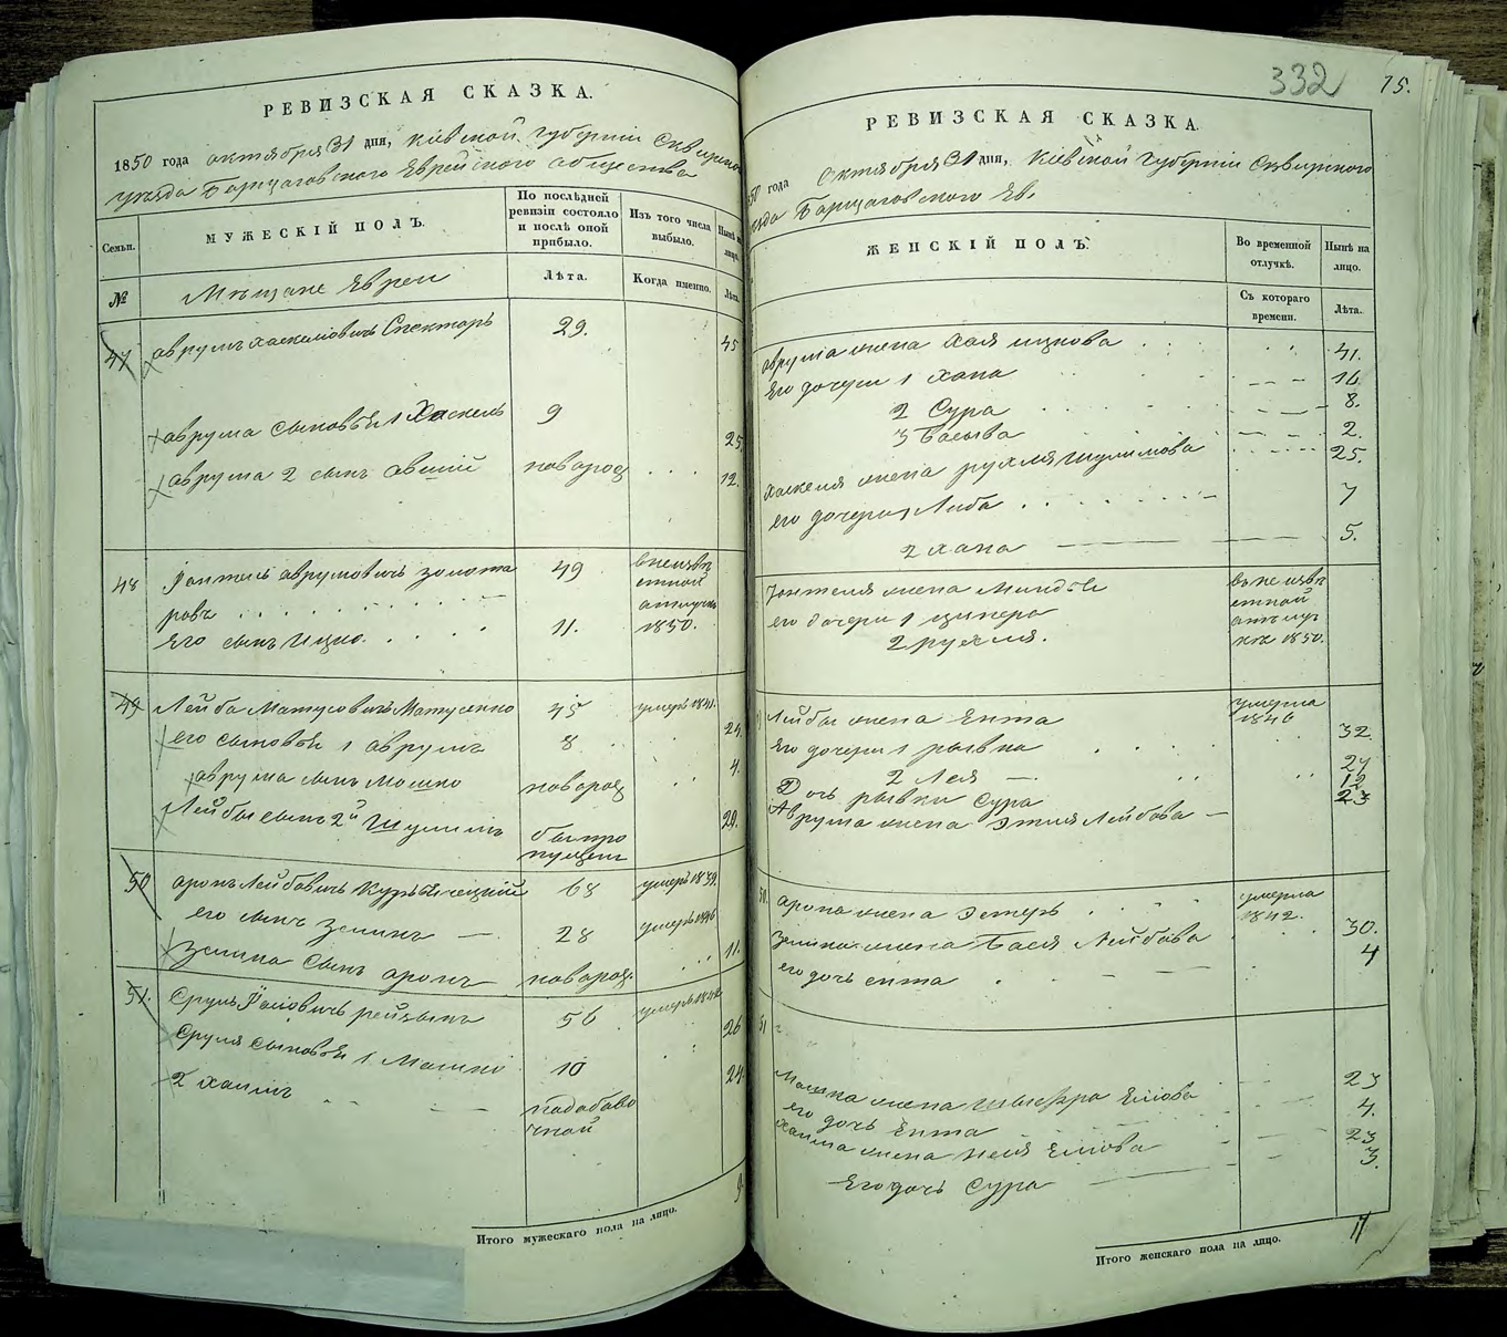 РЕВИЗСКАЯ СКАЗКА.
1850 года октября 31 дня, Кіевской Губерніи Сквирскаго
уезда Борщаговскаго Еврейского общества
Семьи.
МУЖЕСКІЙ ПОЛЪ.
По послѣдней ревизіи состояло и послѣ оной прибыло.
Изъ того числа выбыло.
Нынѣ на лицо.
№
Мещане Евреи
Лѣта.
Когда именно.
Лѣта.
47 аврумъ хаскелiовичь Спекторъ 29. 45
аврума сыновья 1 Хаскель 9 25
аврума 2 сынъ овшій новорож 12.
48 аврумовичь золота 49 внеизвѣ
ровъ стной
отлучке
его сынъ Ицко. 11. 1850.
49 Лейба Матусовичь Матусенко 45 умеръ 1841.
его сыновья 1 аврумъ 8
аврума сынъ мошко новорож 4.
Лейбы сынъ 2й Шулимъ былъ про 22.
пущенъ
50 аронъ Лейбовичь 68 умеръ 1839.
его сынъ Зелинъ 28 умеръ 1846
Зелина сынъ аронъ новорож. 11.
51. Сруль 56
Сруля сыновья 1 Мошко 10 26
2 хаимъ 24.
Итого мужескаго пола на лицо. 9
332 75.
РЕВИЗСКАЯ СКАЗКА.
50 года Октября 31 дня, Кіевской Губерніи Сквирскаго
уезда Борщаговского Ев.
ЖЕНСКІЙ ПОЛЪ.
Во временной отлучкѣ.
Нынѣ на лицо.
Съ котораго времени.
Лѣта.
аврума жена Хая ицкова 41.
Его дочери 1 Хана 16.
2 Сура 8.
3 Басыва 2.
Хаскеля жена рухля Шулимова 25.
его дочери 1 Либа 7
2 хана 5.
жена Миндля въ неизвѣ
стной
его дочери 1 ципера отлуч
2 рухля. ке 1850.
Лейбы жена Ента умерла
1846
Его дочери 1 рывка 32.
2 Лея 27
Дочь рывки Сура 12
Аврума жена Этля Лейбова 23
50. арона жена Эстеръ умерла
1842.
Зелина жена Бася Лейбова 30.
его дочь ента 4
51
мошка жена Шифра 23
его дочь Ента 4.
Хаима жена Нехя 23
Его дочь Сура 3.
Итого женскаго пола на лицо. 17